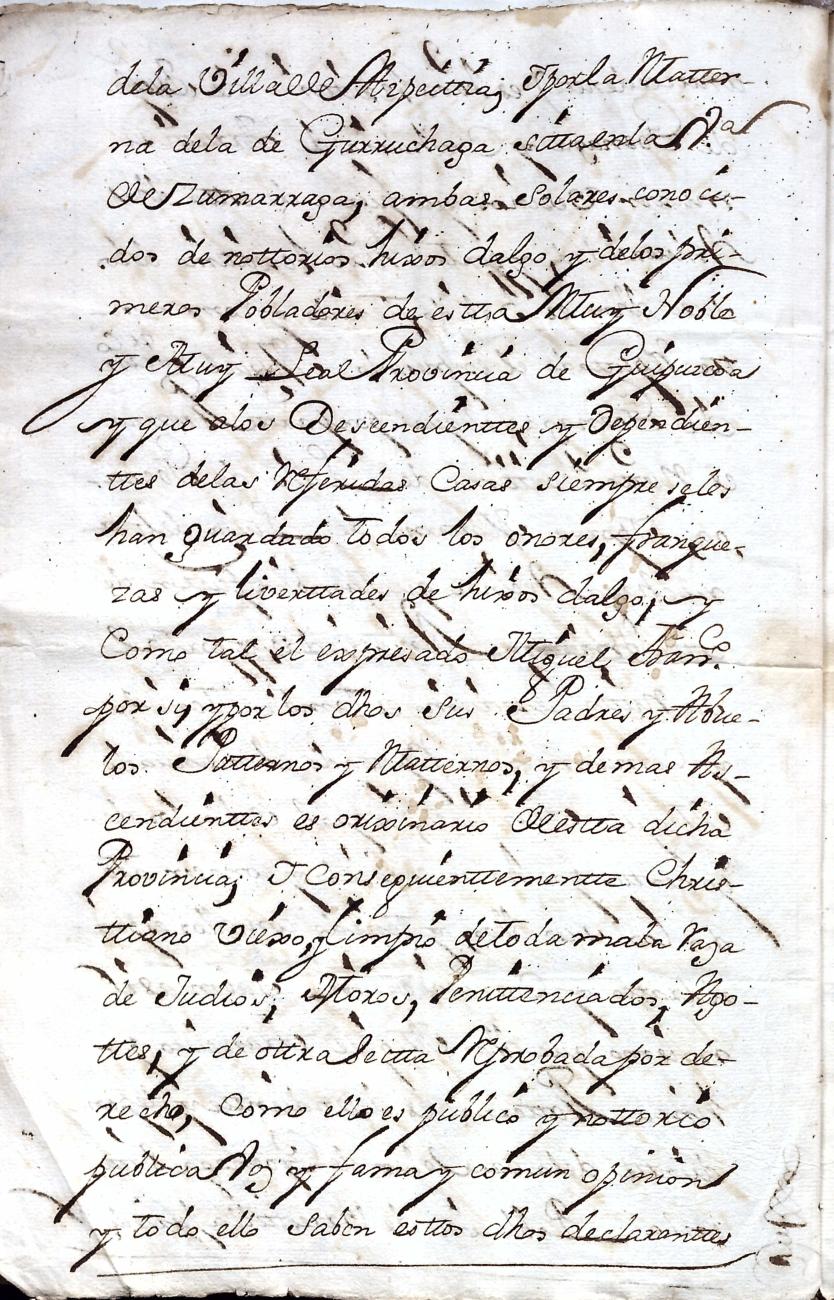 dela Villa de Azpeittia; Y por la Matter-
na dela de Gurruchaga sitta en la V.ª
de Zumarraga; ambas Solares conoci-
dos de nottorios hixos dalgo y delos pri-
meros Pobladores de estta Muy Noble
y Muy Leal Provincia de Guipuzcoa
y que alos Descendienttes y Dependien-
ttes delas Referidas Casas siempre seles
han guardado todos los onores, franque-
zas y liverttades de hixos dalgo; y
Como tal el expresado Miguel Fran.co
por si, y por los dhos sus Padres y Abue-
los Patternos y Matternos, y demas As-
cendienttes es orixinario de estta dicha
Provincia; Y Consequienttementte Chris-
ttiano Viexo, y limpio de toda mala Raza
de Judios, Moros, Penittenciados, Ago-
ttes, y de ottra Sectta Reprobada por de-
recho, Como ello es publico y nottorio
publica Voz y fama y comun opinion
y todo ello saben esttos dhos declaranttes